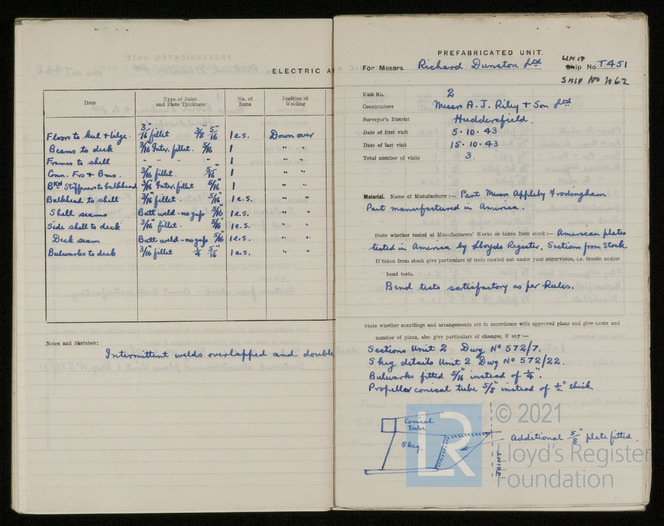 ELECTRIC A
Item Type of Joint and Plate Thickness No. of Runs Position of Welding
Floors to keel & bilge. 3/16" fillet 3/8 5/16" 1 e.s. Down over
Beams to deck 3/16 Inter. fillet. 5/16 1 " "
Frames to shell " " " 1 " "
Conn. Frs & Bms. 3/16" fillet. 5/16" 1 " "
Bkd Stiffeners to bulkhead 3/16" Inter. fillet 5/16" 1 " "
Bulkhead to shell 3/16" fillet. 5/16" 1 e.s. " "
Shell seams Butt weld - no gap 5/16 1 e.s. " "
Side shell to deck 3/16" fillet. 5/16" 1 e.s. " "
Deck seam Butt weld - no gap 5/16 1 e.s. " "
Bulwarks to deck 3/16" fillet 1/4 5/16" 1 e.s. " "
Notes and Sketches:
Intermittent welds overlapped and double
PREFABRICATED UNIT.
For Messrs Richard Dunston Ltd UNIT Ship No. T451
SHIP No
Unit No. 2
Constructors Messrs A. J. Riley & Son Ltd
Surveyor's District Huddersfield.
Date of first visit 5.10.43
Date of last visit 15.10.43
Total number of visits 3.
Material. Name of Manufacturer :— Part Messrs Appleby Frodingham
Part manufactured in America.
State whether tested at Manufacturers' Works or taken from stock :— American plates
tested in America by Lloyds Register. Sections from Stock.
If taken from stock give particulars of tests carried out under your supervision, i.e. tensile and/or
bend tests.
Bend tests satisfactory as per Rules.
State whether scantlings and arrangements are in accordance with approved plans and give name and
number of plans, also give particulars of changes, if any :—
Sections Unit 2 Dwg No 572/7.
Skeg details Unit 2 Dwg No 572/22.
Bulwarks fitted 5/16" instead of 1/4".
Propeller conical tube 5/8" instead of 1/2" thick.
Conical
tube
Skeg.
Additional 5/8" plate fitted.
UNIT 2
LR
© 2021
Lloyd's Register
Foundation